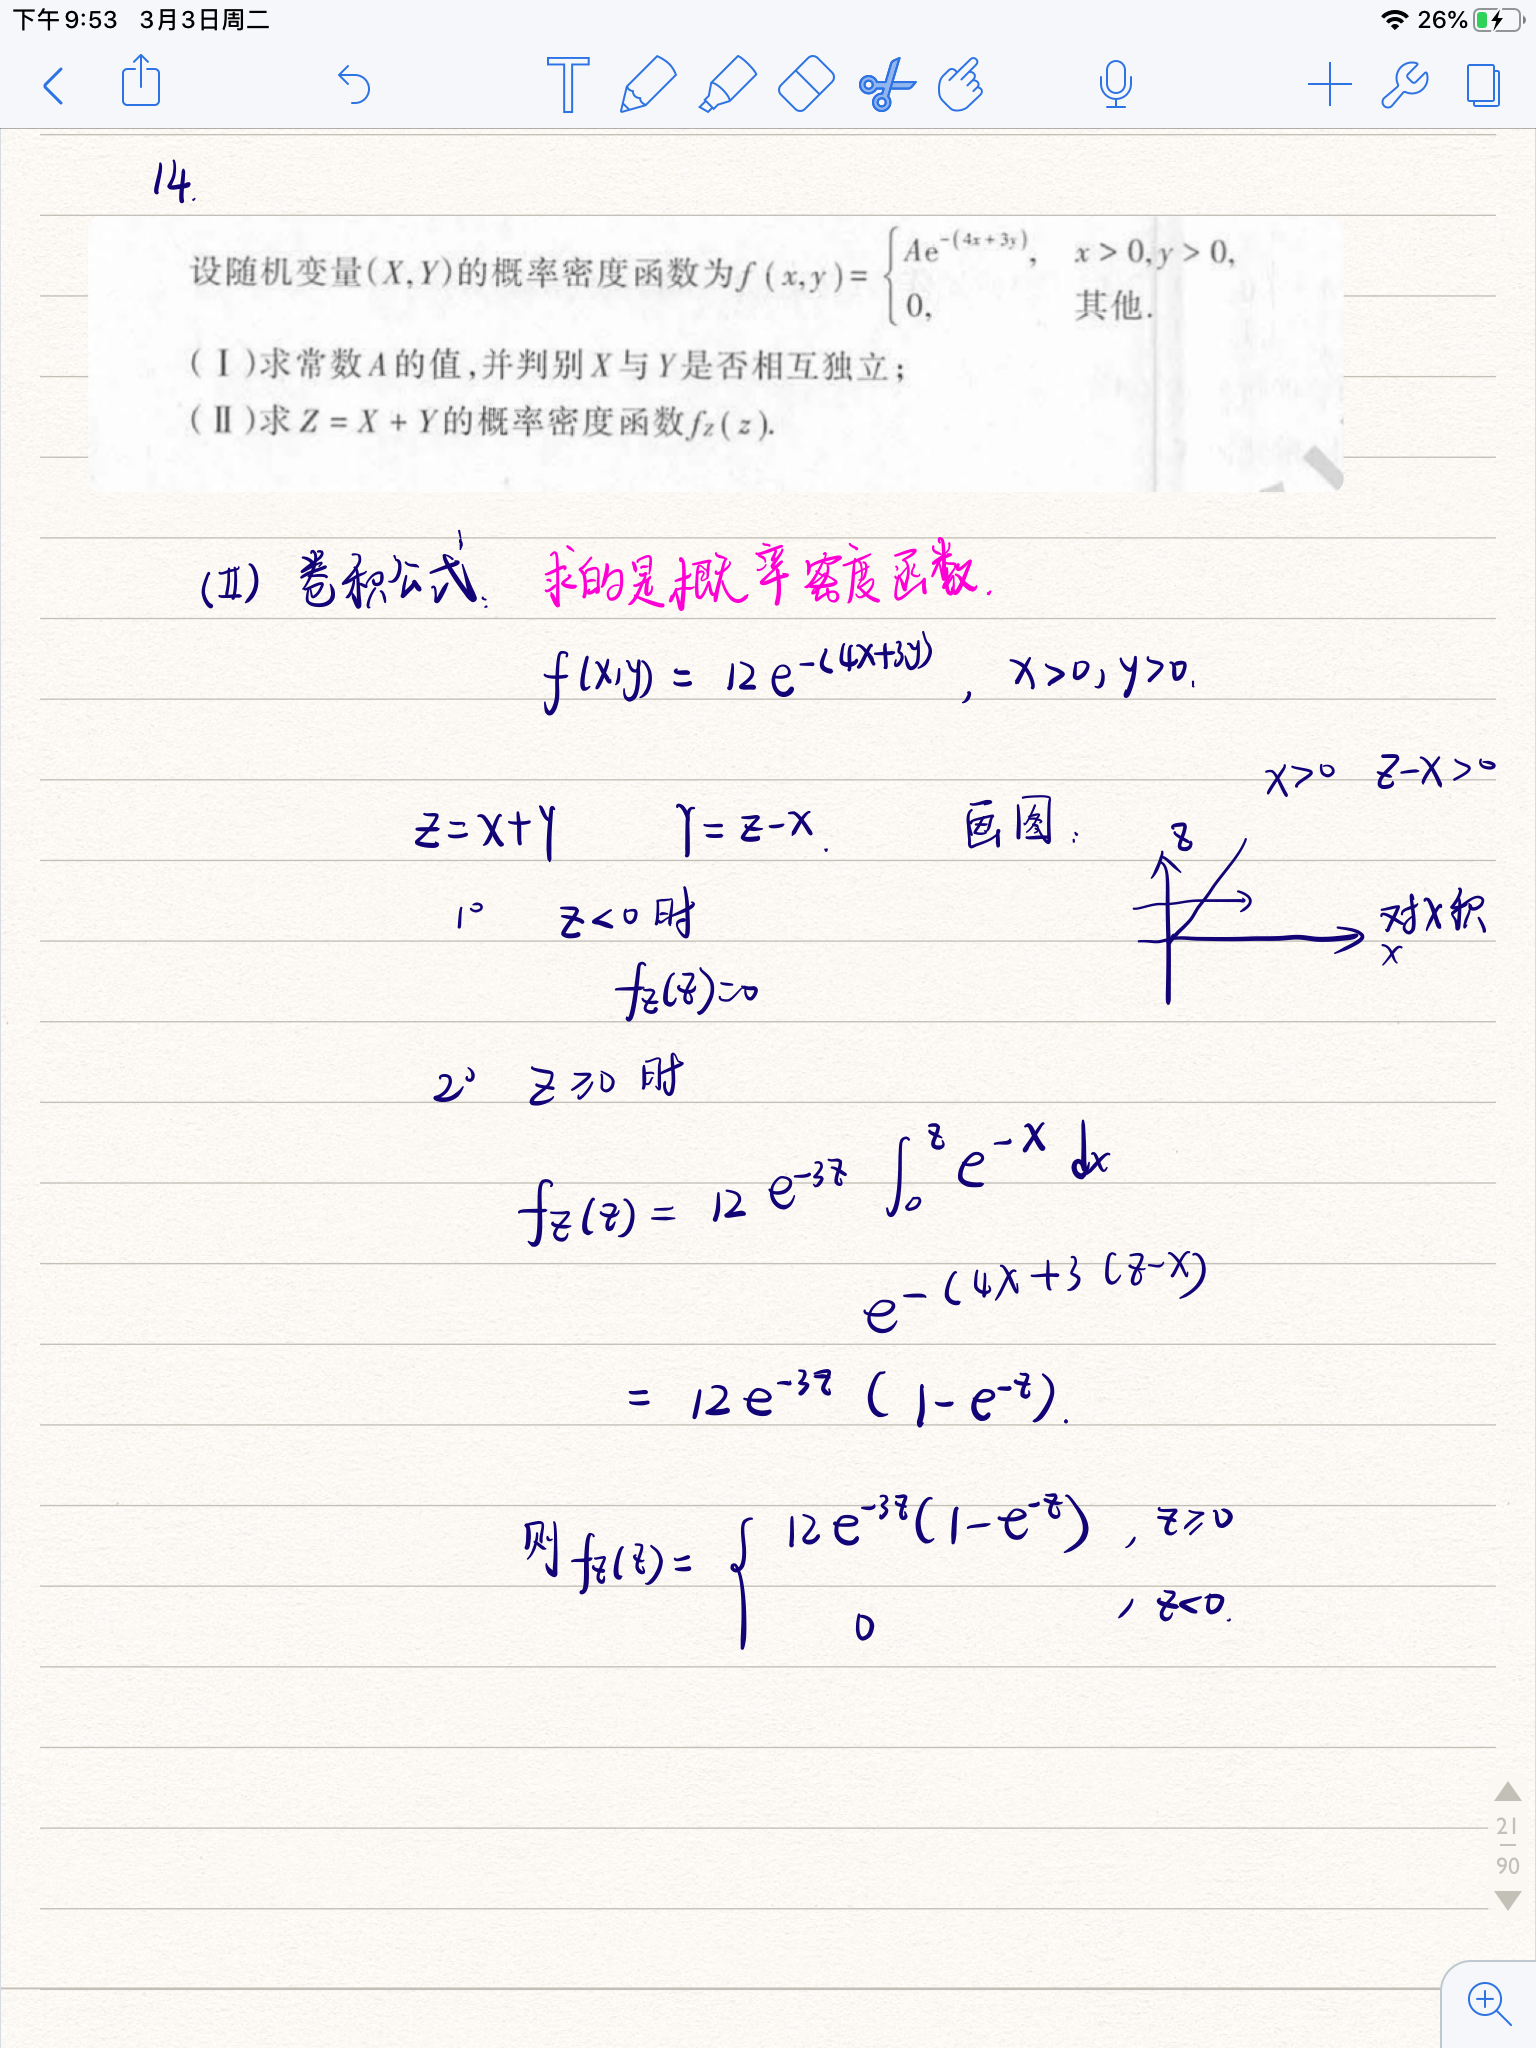 下午9:53 3月3日周二 26%
14.
设随机变量(X,Y)的概率密度函数为f(x,y)={Ae^{-(4x+3y)}, x>0,y>0,
0, 其他.
(Ⅰ)求常数A的值,并判别X与Y是否相互独立;
(Ⅱ)求Z=X+Y的概率密度函数f_Z(z).
(Ⅱ) 卷积公式: 求的是概率密度函数.
f(x,y) = 12e^{-(4x+3y)}, x>0, y>0.
x>0 z-x>0
z=x+y y=z-x. 画图:
z
1° z<0时
对x积
x
f_Z(z)=0
2° z≥0时
f_Z(z) = 12 e^{-3z} ∫_0^z e^{-x} dx
e^{-(4x+3(z-x)}
= 12e^{-3z} (1-e^{-z}).
则 f_Z(z) = { 12e^{-3z}(1-e^{-z}), z≥0
0 , z<0.
21
90